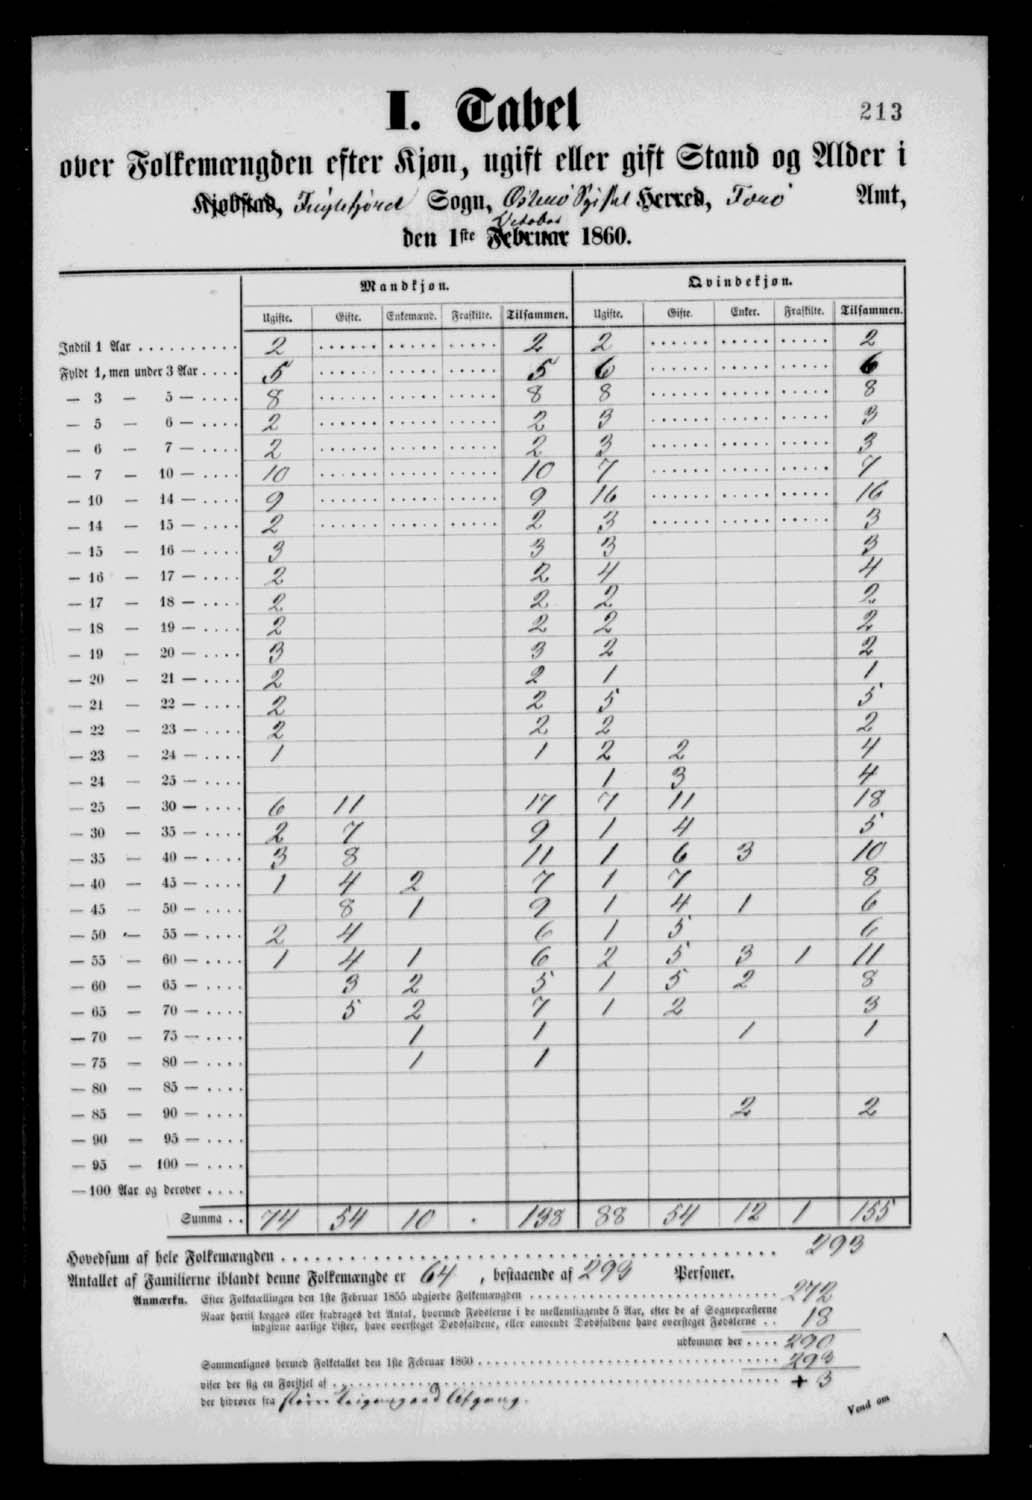 213
I. Tabel
over Folkemængden efter Kjøn, ugift eller gift Stand og Alder i
Kjøbstad, Fuglefjord Sogn, Österö Syssel Herred, Færö Amt,
October
den 1ste Februar 1860.
Mandkjøn. Qvindekjøn.
Ugifte. Gifte. Enkemænd. Fraskilte. Tilsammen. Ugifte. Gifte. Enker. Fraskilte. Tilsammen.
Indtil 1 Aar 2 2 2 2
Fyldt 1, men under 3 Aar 5 5 6 6
— 3 — 5 — 8 8 8 8
— 5 — 6 — 2 2 3 3
— 6 — 7 — 2 2 3 3
— 7 — 10 — 10 10 7 7
— 10 — 14 — 9 9 16 16
— 14 — 15 — 2 2 3 3
— 15 — 16 — 3 3 3 3
— 16 — 17 — 2 2 4 4
— 17 — 18 — 2 2 2 2
— 18 — 19 — 2 2 2 2
— 19 — 20 — 3 3 2 2
— 20 — 21 — 2 2 1 1
— 21 — 22 — 2 2 5 5
— 22 — 23 — 2 2 2 2
— 23 — 24 — 1 1 2 2 4
— 24 — 25 — 1 3 4
— 25 — 30 — 6 11 17 7 11 18
— 30 — 35 — 2 7 9 1 4 5
— 35 — 40 — 3 8 11 1 6 3 10
— 40 — 45 — 1 4 2 7 1 7 8
— 45 — 50 — 8 1 9 1 4 1 6
— 50 — 55 — 2 4 6 1 5 6
— 55 — 60 — 1 4 1 6 2 5 3 1 11
— 60 — 65 — 3 2 5 1 5 2 8
— 65 — 70 — 5 2 7 1 2 3
— 70 — 75 — 1 1 1 1
— 75 — 80 — 1 1
— 80 — 85 —
— 85 — 90 — 2 2
— 90 — 95 —
— 95 — 100 —
— 100 Aar og derover
Summa 74 54 10 . 138 88 54 12 1 155
Hovedsum af hele Folkemængden 293
Antallet af Familierne iblandt denne Folkemængde er 64, bestaaende af 293 Personer.
Anmærkn. Efter Folketællingen den 1ste Februar 1855 udgjorde Folkemængden 272
Naar hertil lægges eller fradrages det Antal, hvormed Fødslerne i de mellemliggende 5 Aar, efter de af Sognepræsterne
indgivne aarlige Lister, have oversteget Dødsfaldene, eller omvendt Dødsfaldene have oversteget Fødslerne 18
udkommer der 290
Sammenlignes hermed Folketallet den 1ste Februar 1860 293
viser der sig en Forskjel af + 3
der hidrører fra större Tilgang end Afgang.
Vend om